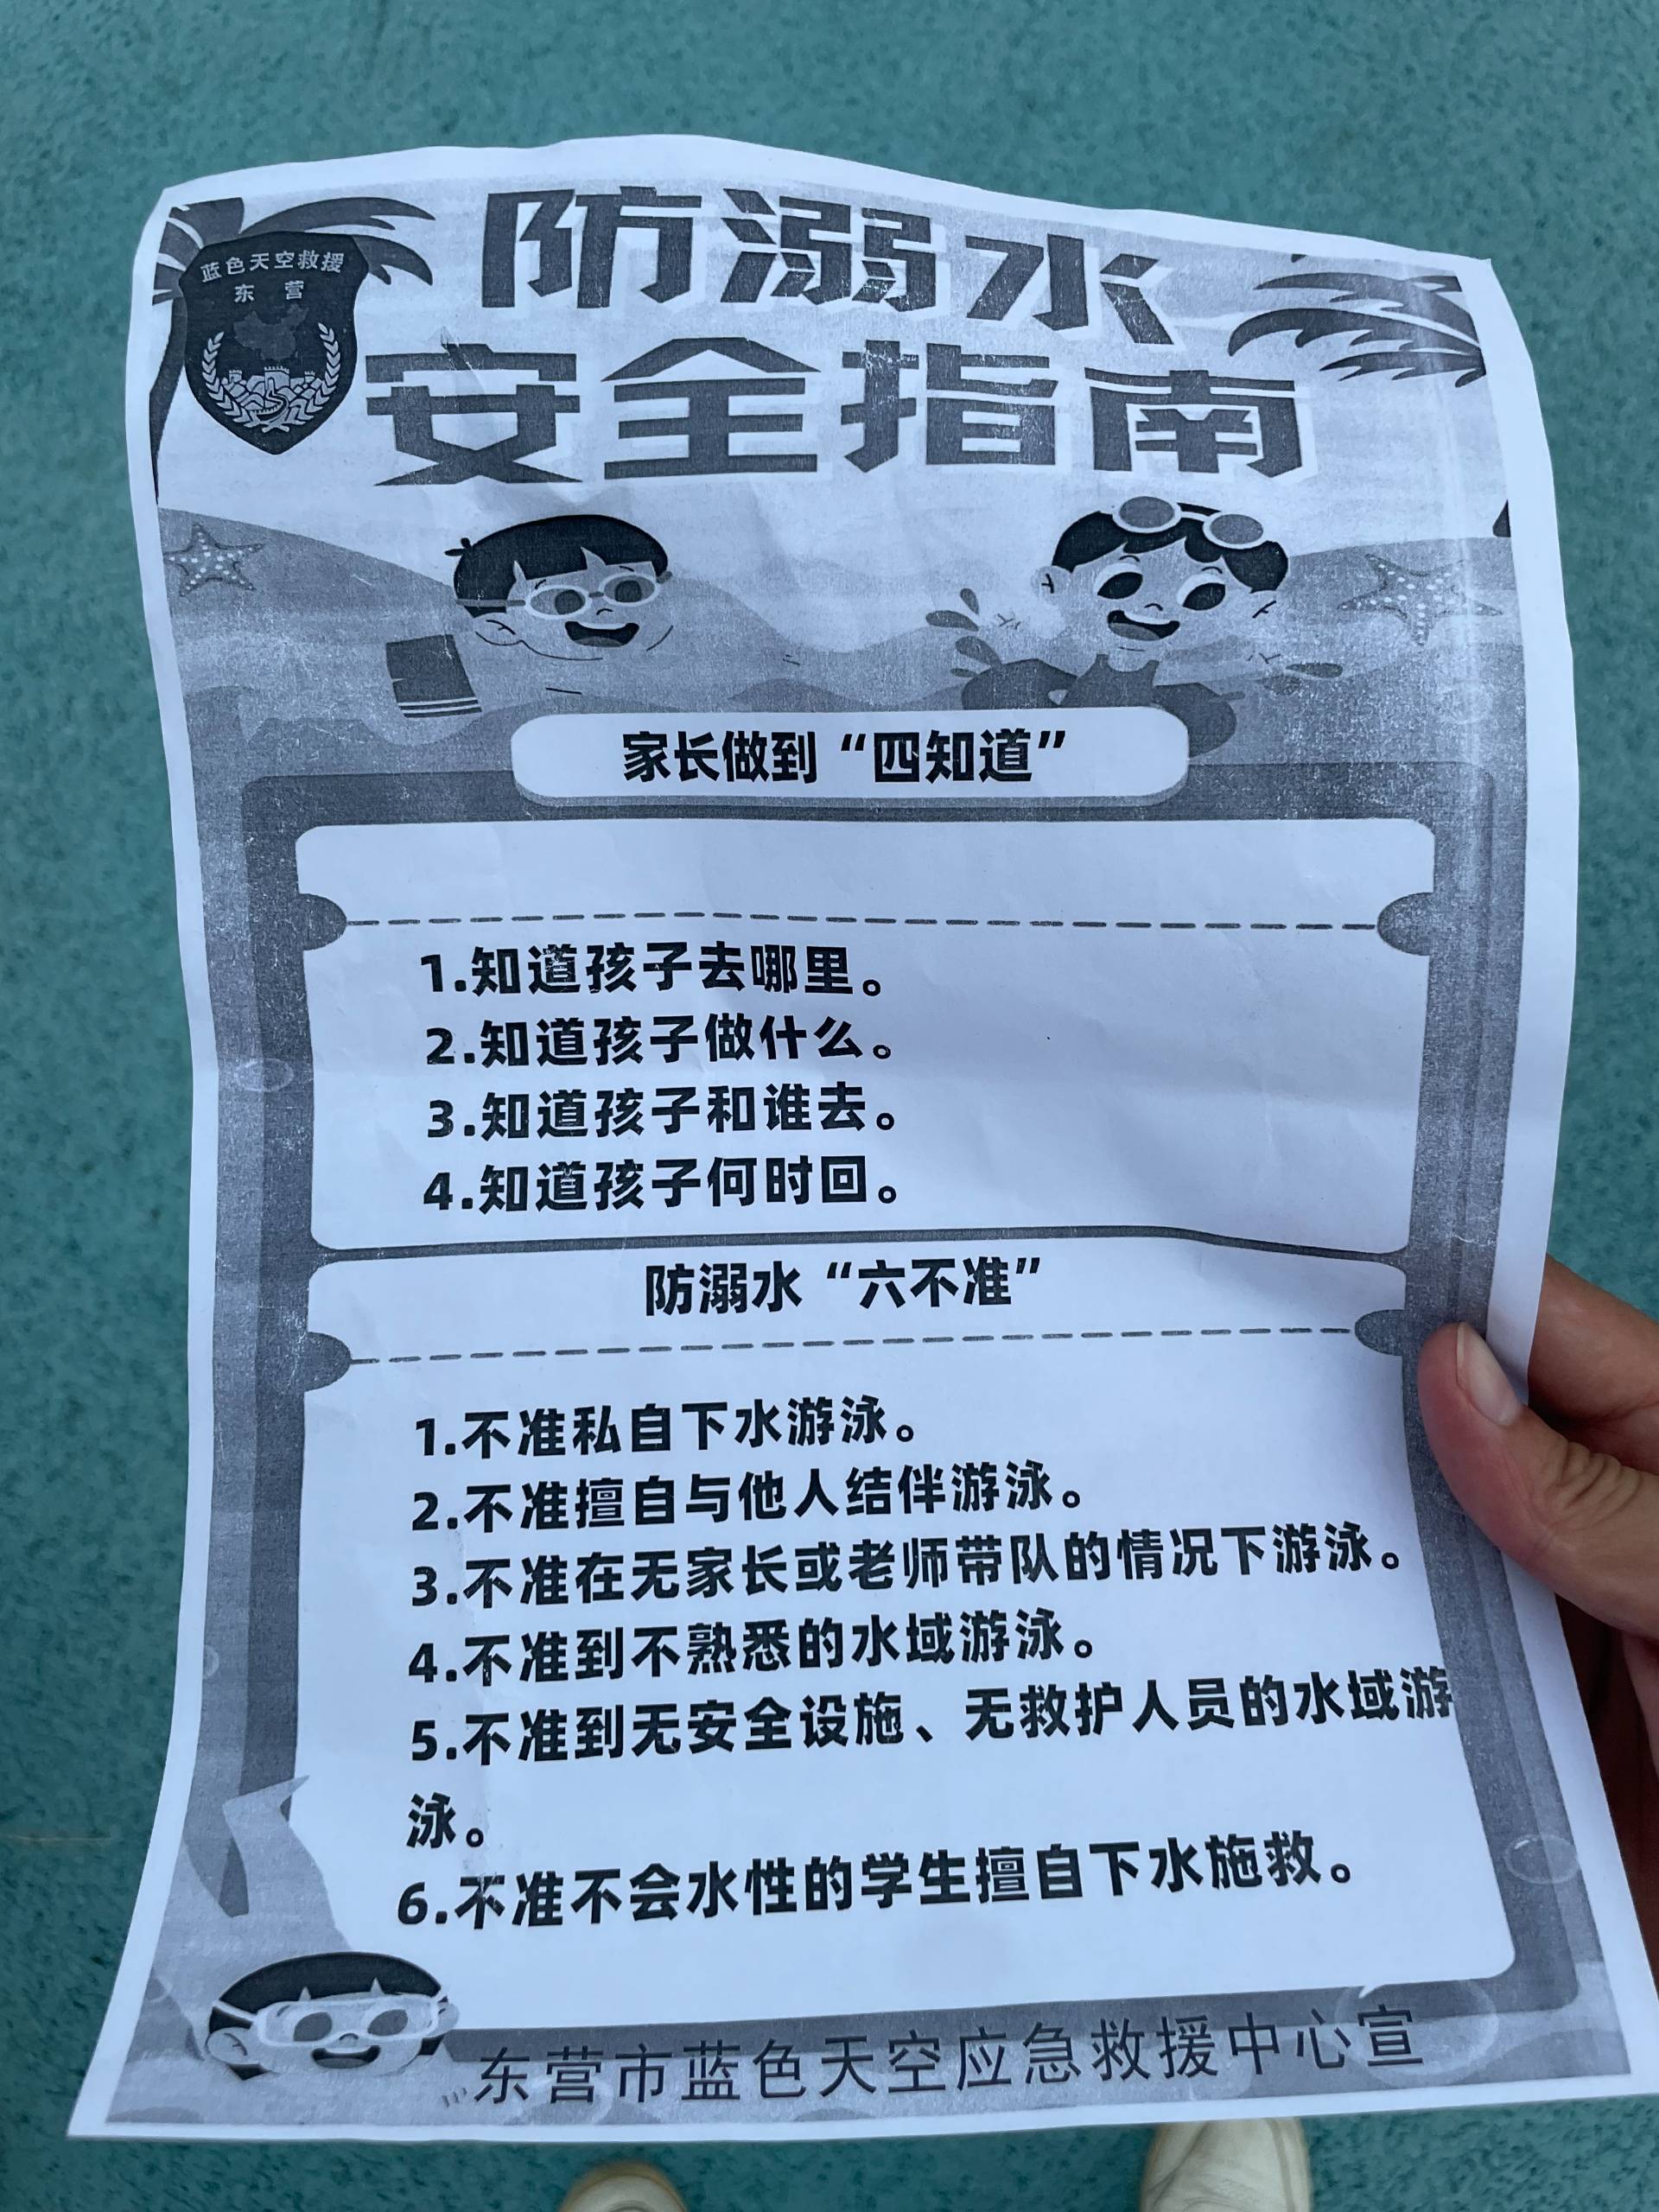 防溺水
蓝色天空救援
东 营
安全指南
家长做到“四知道”
1.知道孩子去哪里。
2.知道孩子做什么。
3.知道孩子和谁去。
4.知道孩子何时回。
防溺水“六不准”
1.不准私自下水游泳。
2.不准擅自与他人结伴游泳。
3.不准在无家长或老师带队的情况下游泳。
4.不准到不熟悉的水域游泳。
5.不准到无安全设施、无救护人员的水域游
泳。
6.不准不会水性的学生擅自下水施救。
东营市蓝色天空应急救援中心宣